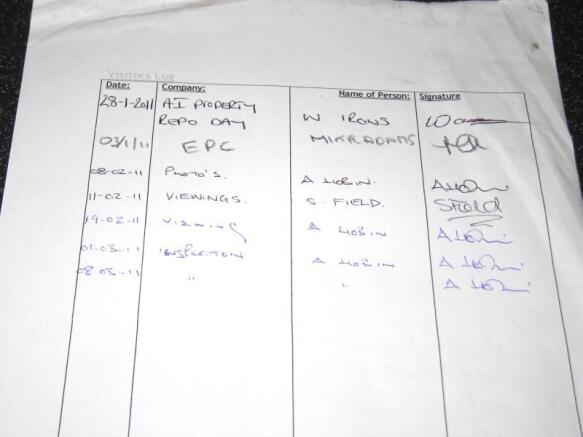 Visitors Log
Date: Company: Name of Person: Signature
28-1-2011 A1 PROPERTY
REPO DAY W IRONS
03/1/11 EPC MIKE ADAMS
08-02-11 PHOTO'S. A HOBIN.
11-02-11 VIEWINGS. S. FIELD. SField
19-02-11 VIEWING A HOBIN A Hobin
01-03-11 INSPECTION A HOBIN A Hobin
08-03-11 " " A Hobin